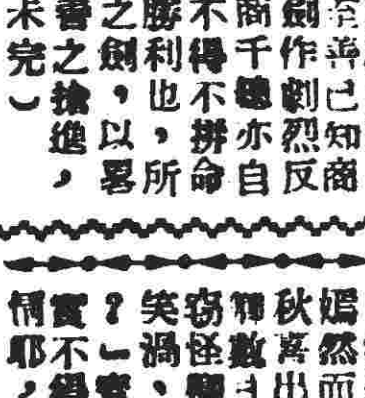 至善已知商
劍作劇烈反
商千亦自
不得不拼命
勝利也，所
之劍，以畧
善之搶進，
未完）
嫣然而
秋喜出
數
竊怪
笑渦、
？」
實不得
情耶，